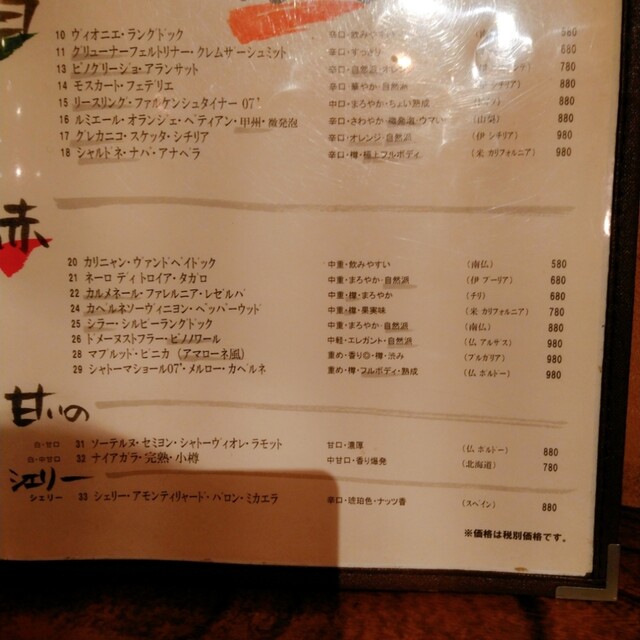 白
10 ヴィオニエ・ラングドック 辛口・飲みやすい 580
11 グリューナーフェルトリナー・クレムザーシュミット 辛口・すっきり 680
13 ピノグリージョ・アランサット 辛口・自然派・オレンジ 780
14 モスカート・フェデリエ 辛口・華やか・自然派 880
15 リースリング・ファルケンシュタイナー 07' 中口・まろやか・ちょい熟成 880
16 ルミエール・オランジェ・ペティアン・甲州・微発泡 辛口・さわやか・微発泡・ウマい (山梨) 880
17 グレカニコ・スケッタ・シチリア 辛口・オレンジ・自然派 (伊 シチリア) 980
18 シャルドネ・ナパ・アナベラ 辛口・樽・極上フルボディ (米 カリフォルニア) 980
赤
20 カリニャン・ヴァンドペイドック 中重・飲みやすい (南仏) 580
21 ネーロ ディ トロイア・タガロ 中重・まろやか・自然派 (伊 プーリア) 680
22 カルメネール・ファレルニア・レゼルバ 中重・樽・まろやか (チリ) 680
24 カベルネソーヴィニヨン・ペッパーウッド 中重・樽・果実味 (米 カリフォルニア) 780
25 シラー・シルビーラングドック 中重・まろやか・自然派 (南仏) 880
26 トメーヌストフラー・ピノノワール 中軽・エレガント・自然派 (仏 アルザス) 980
28 マブルッド・ビニカ (アマローネ風) 重め・香り◎・樽・渋み (ブルガリア) 980
29 シャトーマショール07'・メルロー・カベルネ 重め・樽・フルボディ・熟成 (仏 ボルドー) 980
甘いの
白・甘口 31 ソーテルヌ・セミヨン・シャトーヴィオレ・ラモット 甘口・濃厚 (仏 ボルドー) 880
白・中甘口 32 ナイアガラ・完熟・小樽 中甘口・香り爆発 (北海道) 780
シェリー
シェリー 33 シェリー・アモンティリャード・バロン・ミカエラ 辛口・琥珀色・ナッツ香 (スペイン) 880
※価格は税別価格です。